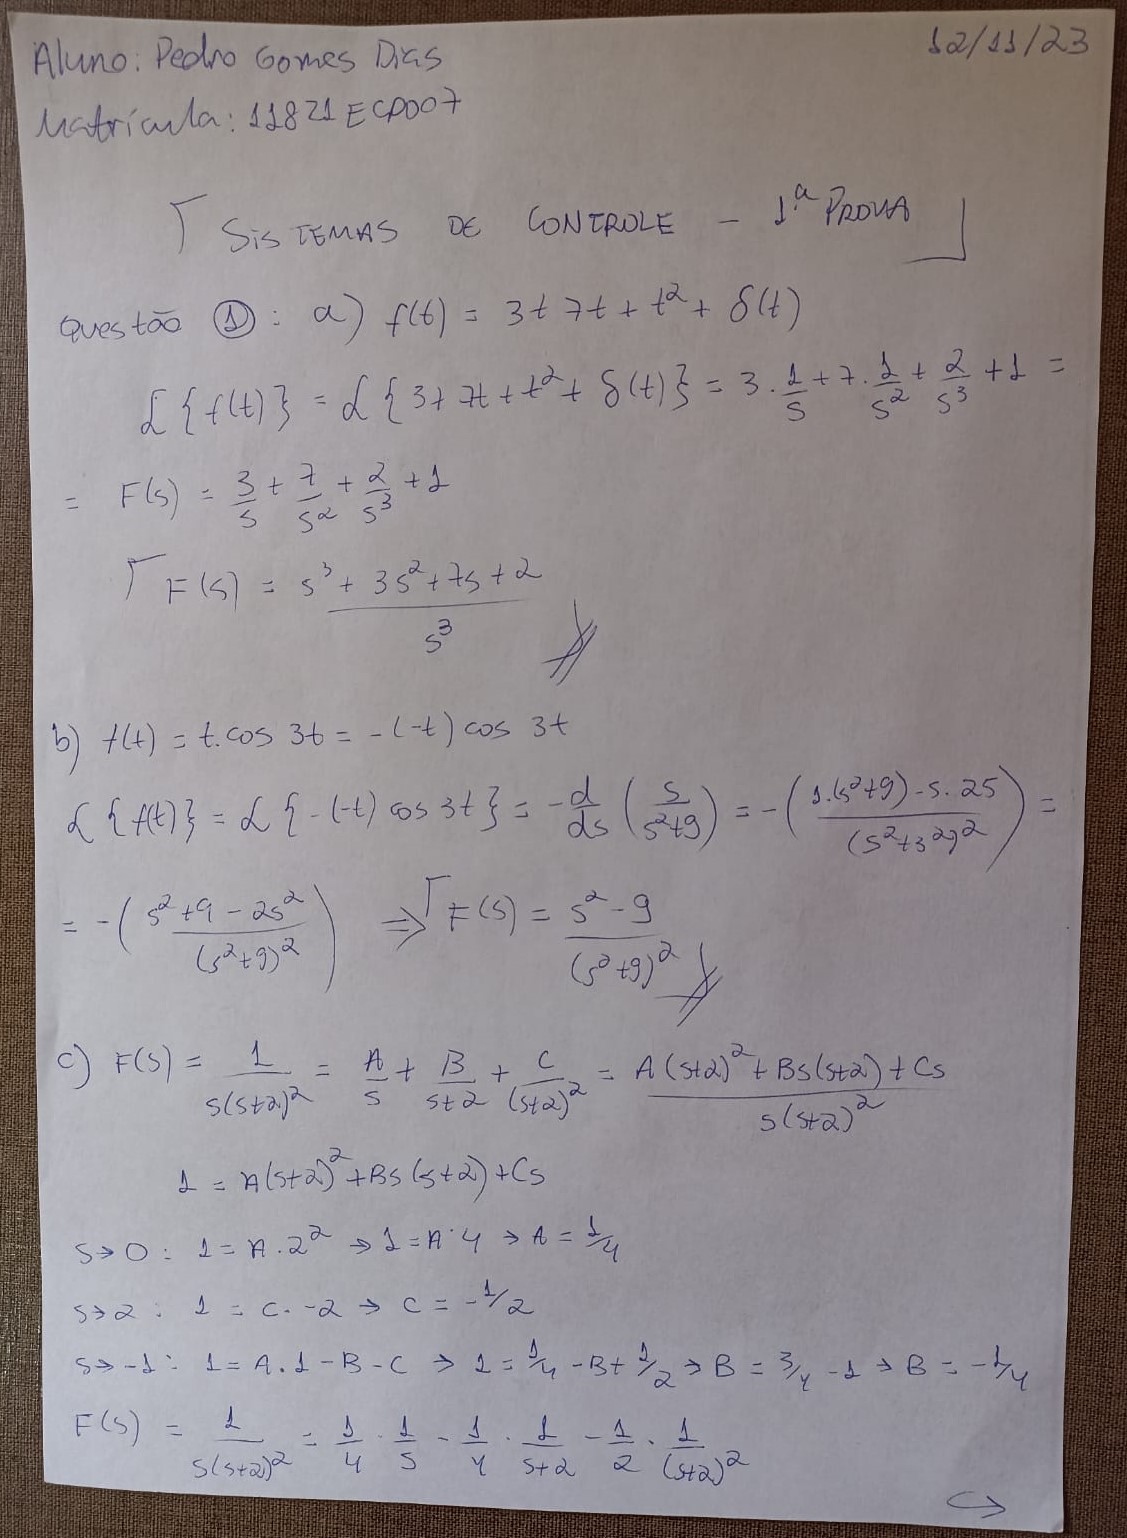 Aluno: Pedro Gomes Dias 12/11/23
Matrícula: 11821ECP007
SISTEMAS DE CONTROLE - 1ª PROVA
Questão ①: a) f(t) = 3+7t+t²+δ(t)
ℒ{f(t)} = ℒ{3+7t+t²+δ(t)} = 3·1/s + 7·1/s² + 2/s³ + 1 =
= F(s) = 3/s + 7/s² + 2/s³ + 1
F(s) = (s³+3s²+7s+2)/s³
b) f(t) = t.cos 3t = -(-t) cos 3t
ℒ{f(t)} = ℒ{-(-t) cos 3t} = -d/ds (s/(s²+9)) = -((1.(s²+9)-s.2s)/(s²+3²)²) =
= -((s²+9-2s²)/(s²+9)²) ⇒ F(s) = (s²-9)/(s²+9)²
c) F(s) = 1/(s(s+2)²) = A/s + B/(s+2) + C/(s+2)² = (A(s+2)²+Bs(s+2)+Cs)/(s(s+2)²)
1 = A(s+2)²+Bs(s+2)+Cs
s→0: 1=A.2² → 1=A·4 → A=1/4
s→2: 1 = C.-2 → C=-1/2
s→-1: 1=A.1-B-C → 1=1/4-B+1/2 → B=3/4-1 → B=-1/4
F(s) = 1/(s(s+2)²) = 1/4·1/s - 1/4·1/(s+2) - 1/2·1/(s+2)²
↪